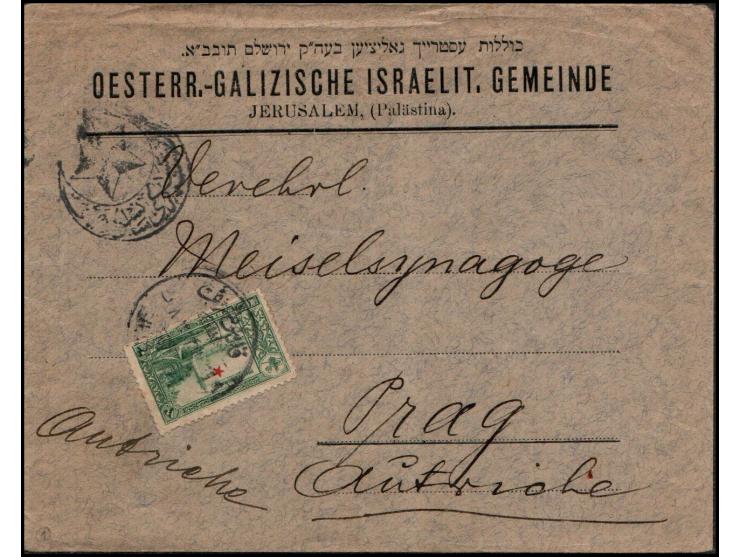 כוללות עסטרייך גאליציען בעה"ק ירושלם תובב"א.
OESTERR.-GALIZISCHE ISRAELIT. GEMEINDE
JERUSALEM, (Palästina).
Verehrl.
Meiselsynagoge
Prag
Autriche
Autriche